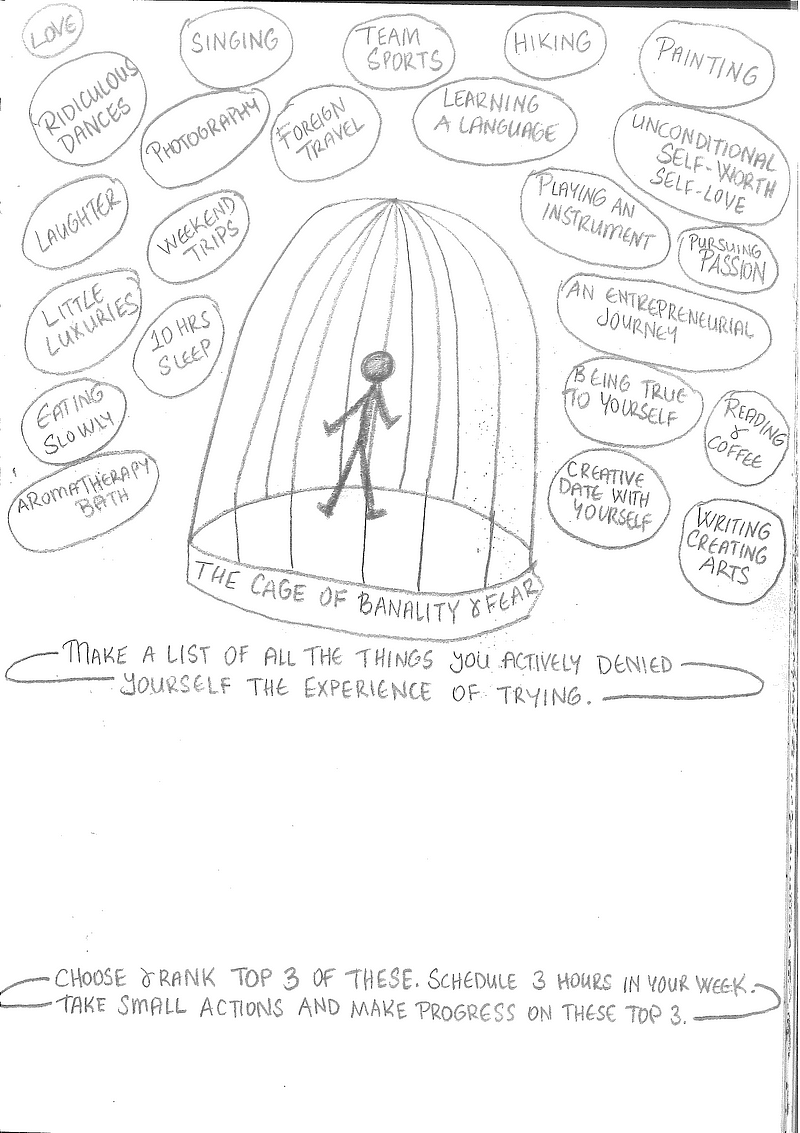 LOVE
SINGING
TEAM
SPORTS
HIKING
PAINTING
RIDICULOUS
DANCES
PHOTOGRAPHY
FOREIGN
TRAVEL
LEARNING
A LANGUAGE
UNCONDITIONAL
SELF-WORTH
SELF-LOVE
LAUGHTER
WEEKEND
TRIPS
PLAYING AN
INSTRUMENT
PURSUING
PASSION
LITTLE
LUXURIES
10 HRS
SLEEP
AN ENTREPRENEURIAL
JOURNEY
EATING
SLOWLY
BEING TRUE
TO YOURSELF
READING
&
COFFEE
AROMATHERAPY
BATH
CREATIVE
DATE WITH
YOURSELF
WRITING
CREATING
ARTS
THE CAGE OF BANALITY & FEAR
MAKE A LIST OF ALL THE THINGS YOU ACTIVELY DENIED
YOURSELF THE EXPERIENCE OF TRYING.
CHOOSE & RANK TOP 3 OF THESE. SCHEDULE 3 HOURS IN YOUR WEEK.
TAKE SMALL ACTIONS AND MAKE PROGRESS ON THESE TOP 3.